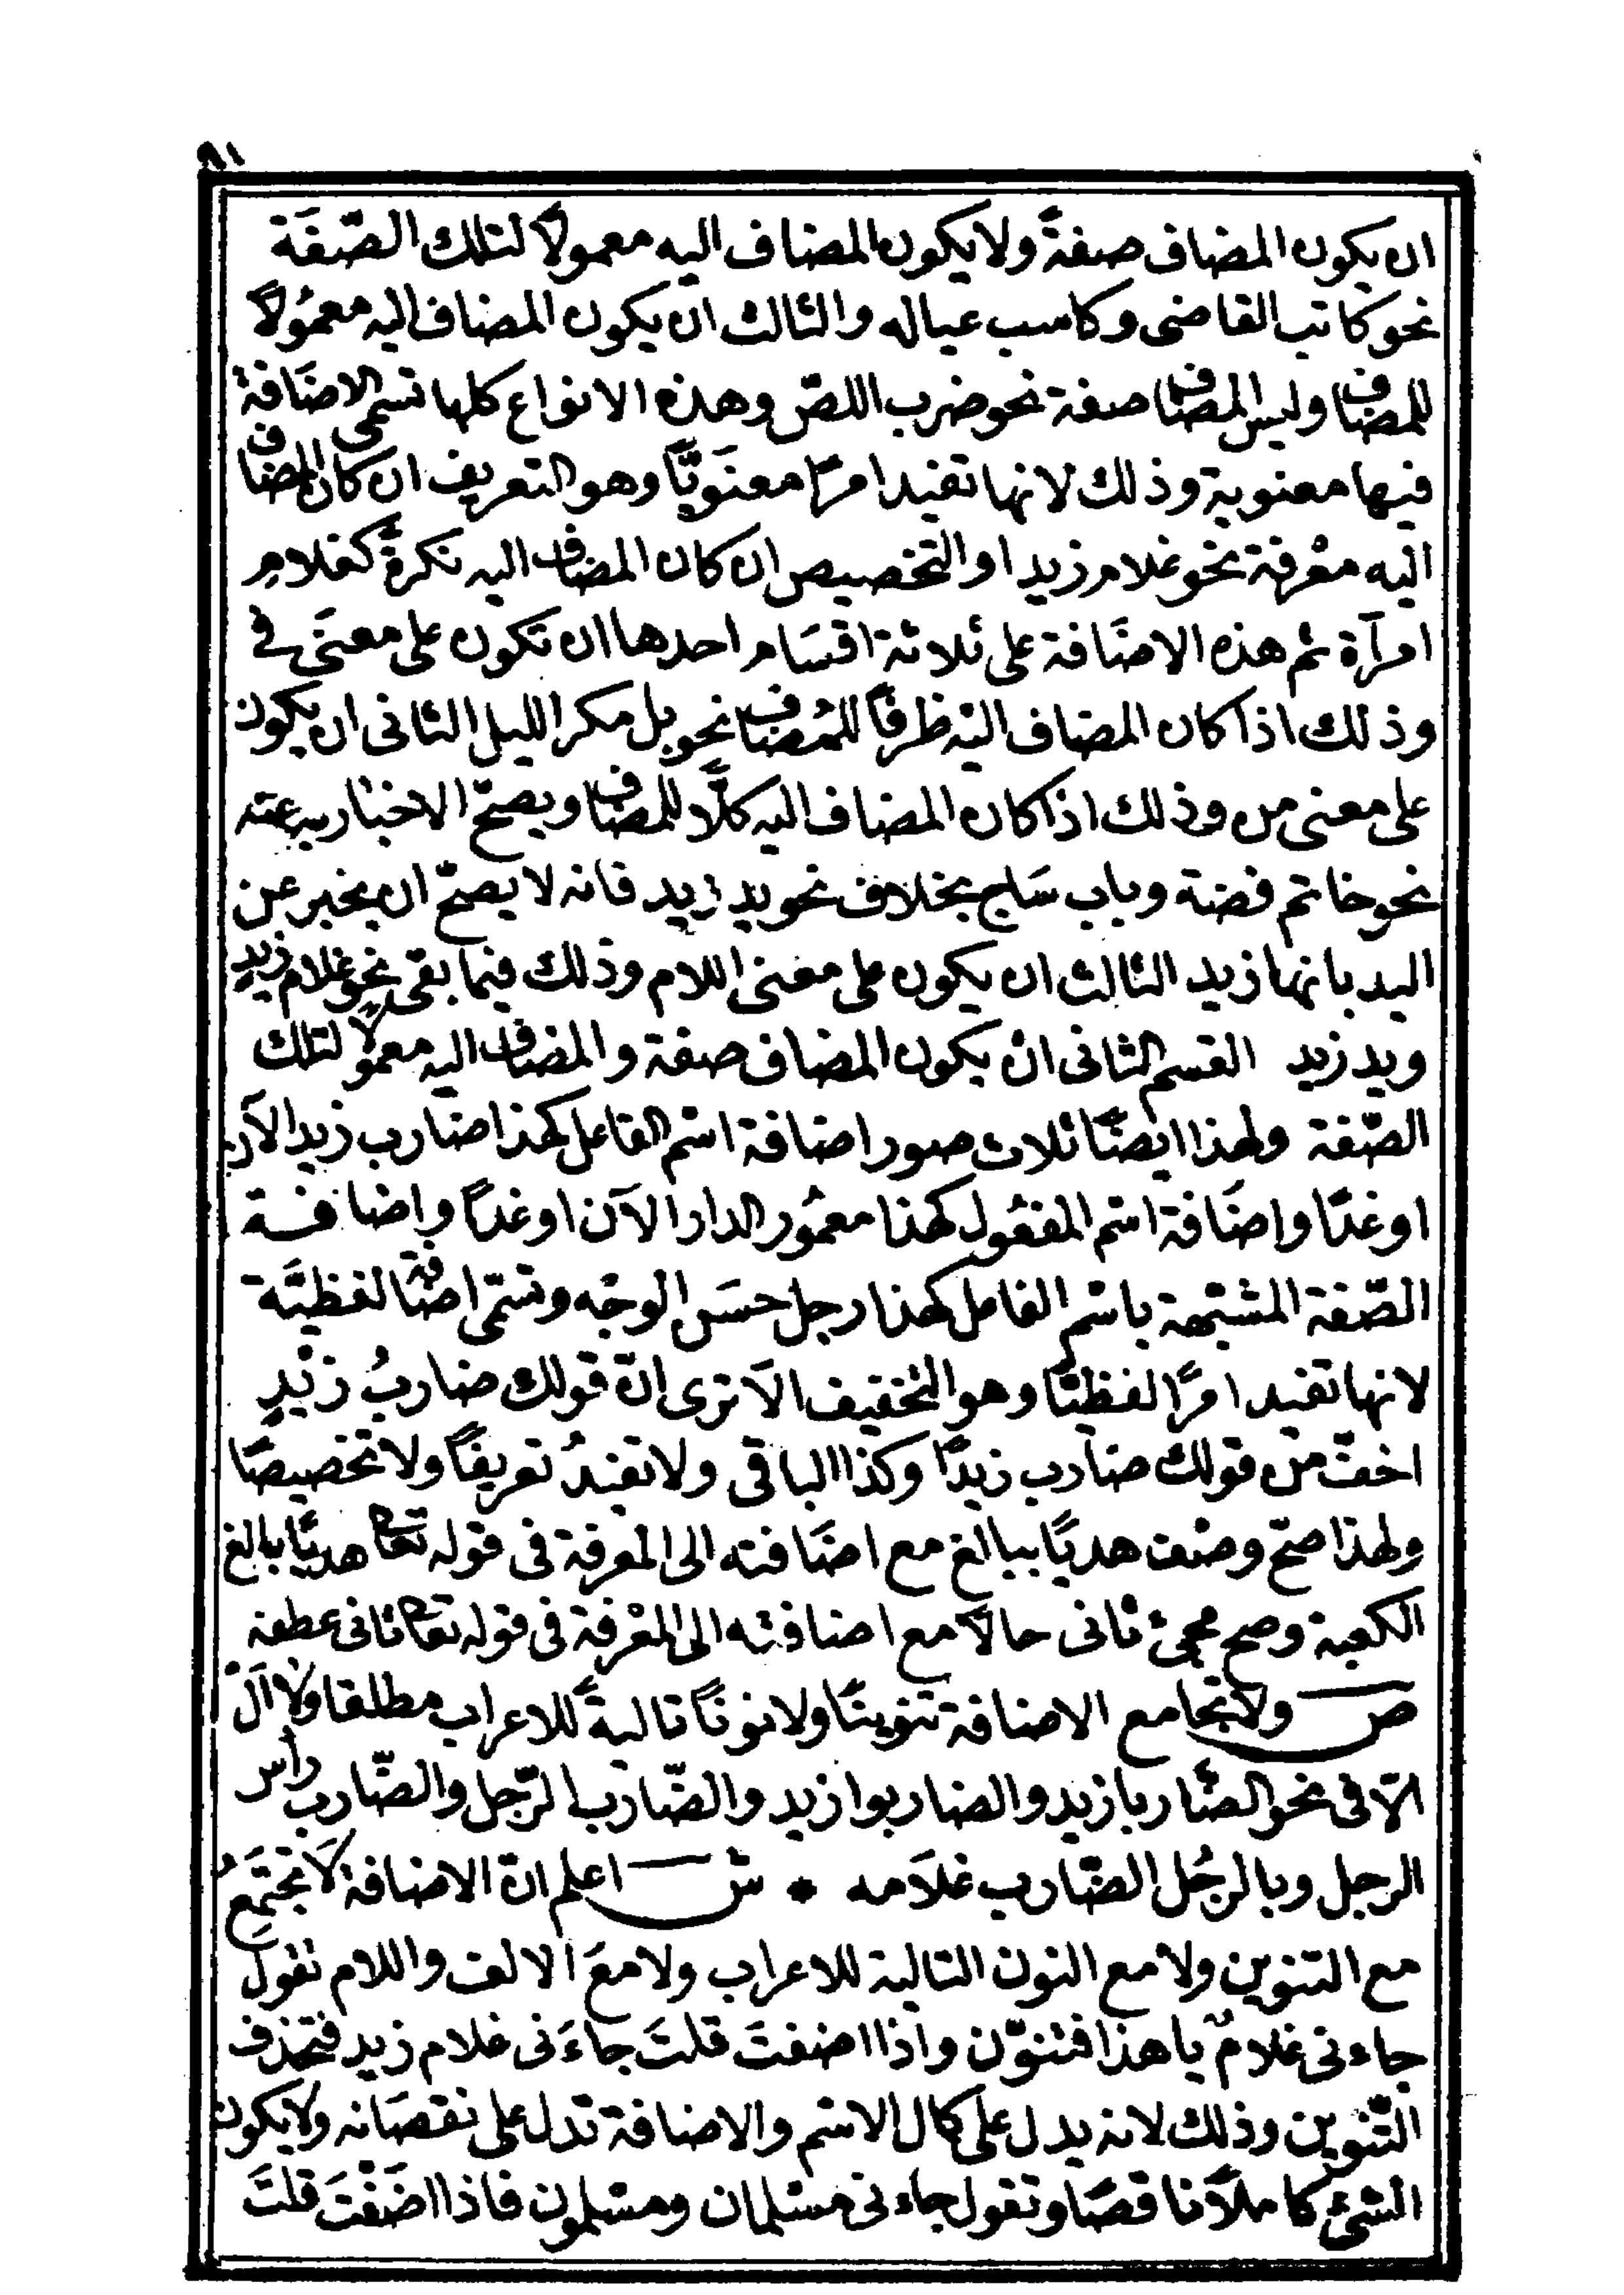 ٩١
ان يكون المضاف صفةً ولا يكون المضاف اليه معمولاً لتلك الصّفَة
نحو كاتب القاضى وكاسب عياله والثالث ان يكون المضاف اليه معمُولاً
للمضاف وليس المضاف صفة نحو ضرب اللصّ وهذه الانواع كلها تسمى الاضَافة
فيها معنوية وذلك لانها تفيد امرًا معنَويًّا وهو التعريف ان كان المضاف
اليه معْرفة نحو غلام زيد او التخصيص ان كان المضاف اليه نكرةً كغلامِ
امرآة ثم هذه الاضَافة على ثلاثة اقسَام احدها ان تكون على معنَى فى
وذلك اذا كان المضاف اليْه ظرفاً للمُضاف نحو بل مكر الليل الثانى ان يكون
على معنى من وذلك اذا كان المضاف اليه كلًّا للمضاف ويصحّ الاخبار به عنه
نحو خاتم فضة وباب سَاج بخلاف نحو يد زيد فانه لا يصحّ ان يخبر عن
اليد بانها زيد الثالث ان يكون على معنى اللام وذلك فيما بقى نحو غلام زيدٍ
ويد زيد القسم الثانى انْ يكون المضاف صفة والمضاف اليه معمولاً لتلك
الصّفة ولهذا ايضًا ثلاث صور اضافة اسْم الفاعل كهذا ضارب زيد الآن
او غدًا واضَافة اسْم المفعُول كهذا معمُور الدار الآن او غداً واضافة
الصّفة المشبّهة باسْم الفاعل كهذا رجل حسَن الوجْه وتسمّى اضافة لفظيَّة
لانها تفيد امرًا لفظيًّا وهو التخفيف الاَ ترى انّ قولك ضاربُ زيْدٍ
اخفّ من قولك ضارب زيدًا وكذا الباقى ولا تفيدُ تعريفًا ولا تخصيصًا
ولهذا صحّ وصْف هديًا ببالغ مع اضَافته الى المعرفة فى قوله تعا هديًا بالغ
الكعبة وصح مجئ ثانى حالاً مع اضافته الى المعْرفة فى قوله تعا ثانى عطفه
ص ولا تجامع الاضافة تنوينًا ولا نونًا تاليةً للاعراب مطلقا ولا اَلْ
الّا فى نحو الضّاربا زيد والضاربوا زيد والضّارب الرّجل والضّارب راس
الرجل وبالرجُل الضّارب غلاَمه * ش اعلم انّ الاضافة لاَ تجتَمعُ
مع التنوين ولا مع النون التالية للاعراب ولا معَ الالف واللام تقول
جاءنى غلامٌ يا هذا فتنوّن واذا اضفتَ قلتَ جاءَنى غلام زيد فتحذف
التّنوين وذلك لانه يدل على كمال الاسْم والاضافة تدل على نقصَانه ولا يكون
الشئ كاملاً ناقصًا وتقول جاءنى مسْلمان ومسْلمون فاذا اضَفْتَ قلتَ